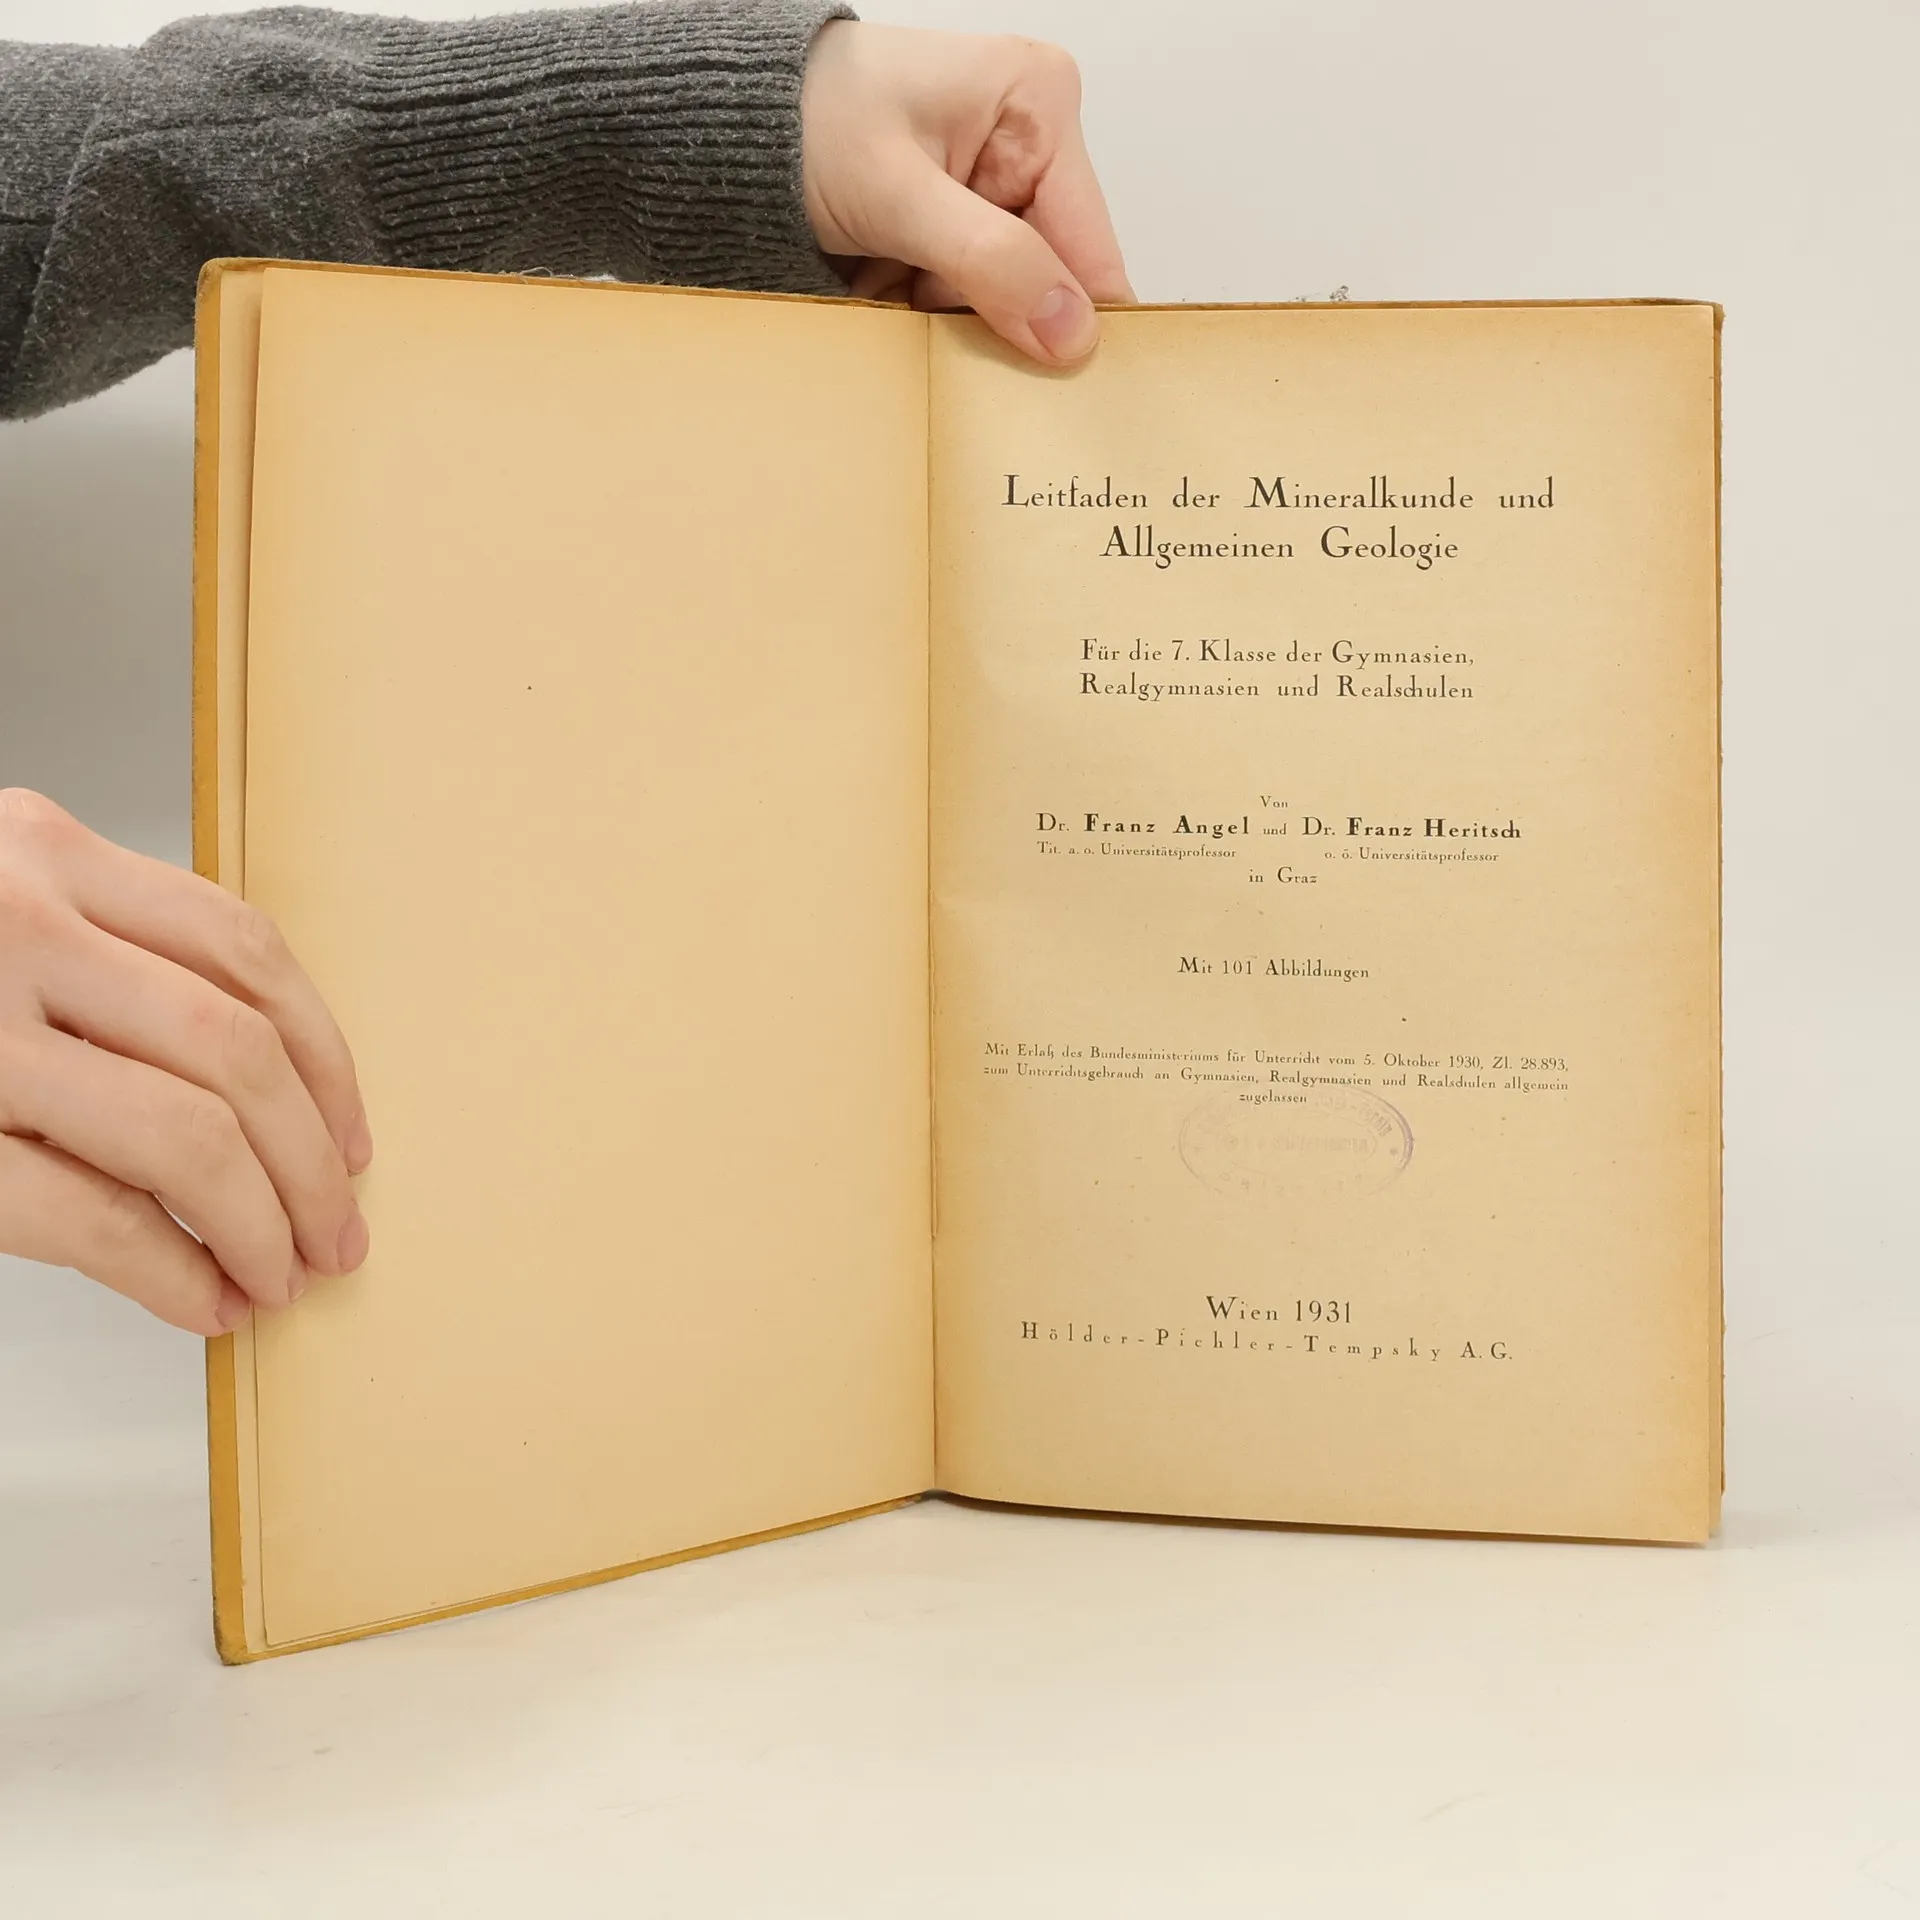 Leitfaden der Mineralkunde und
Allgemeinen Geologie
Für die 7. Klasse der Gymnasien,
Realgymnasien und Realschulen
Von
Dr. Franz Angel und Dr. Franz Heritsch
Tit. a. o. Universitätsprofessor o. ö. Universitätsprofessor
in Graz
Mit 101 Abbildungen
Mit Erlaß des Bundesministeriums für Unterricht vom 5. Oktober 1930, Zl. 28.893,
zum Unterrichtsgebrauch an Gymnasien, Realgymnasien und Realschulen allgemein
zugelassen
Wien 1931
Hölder-Pichler-Tempsky A.G.